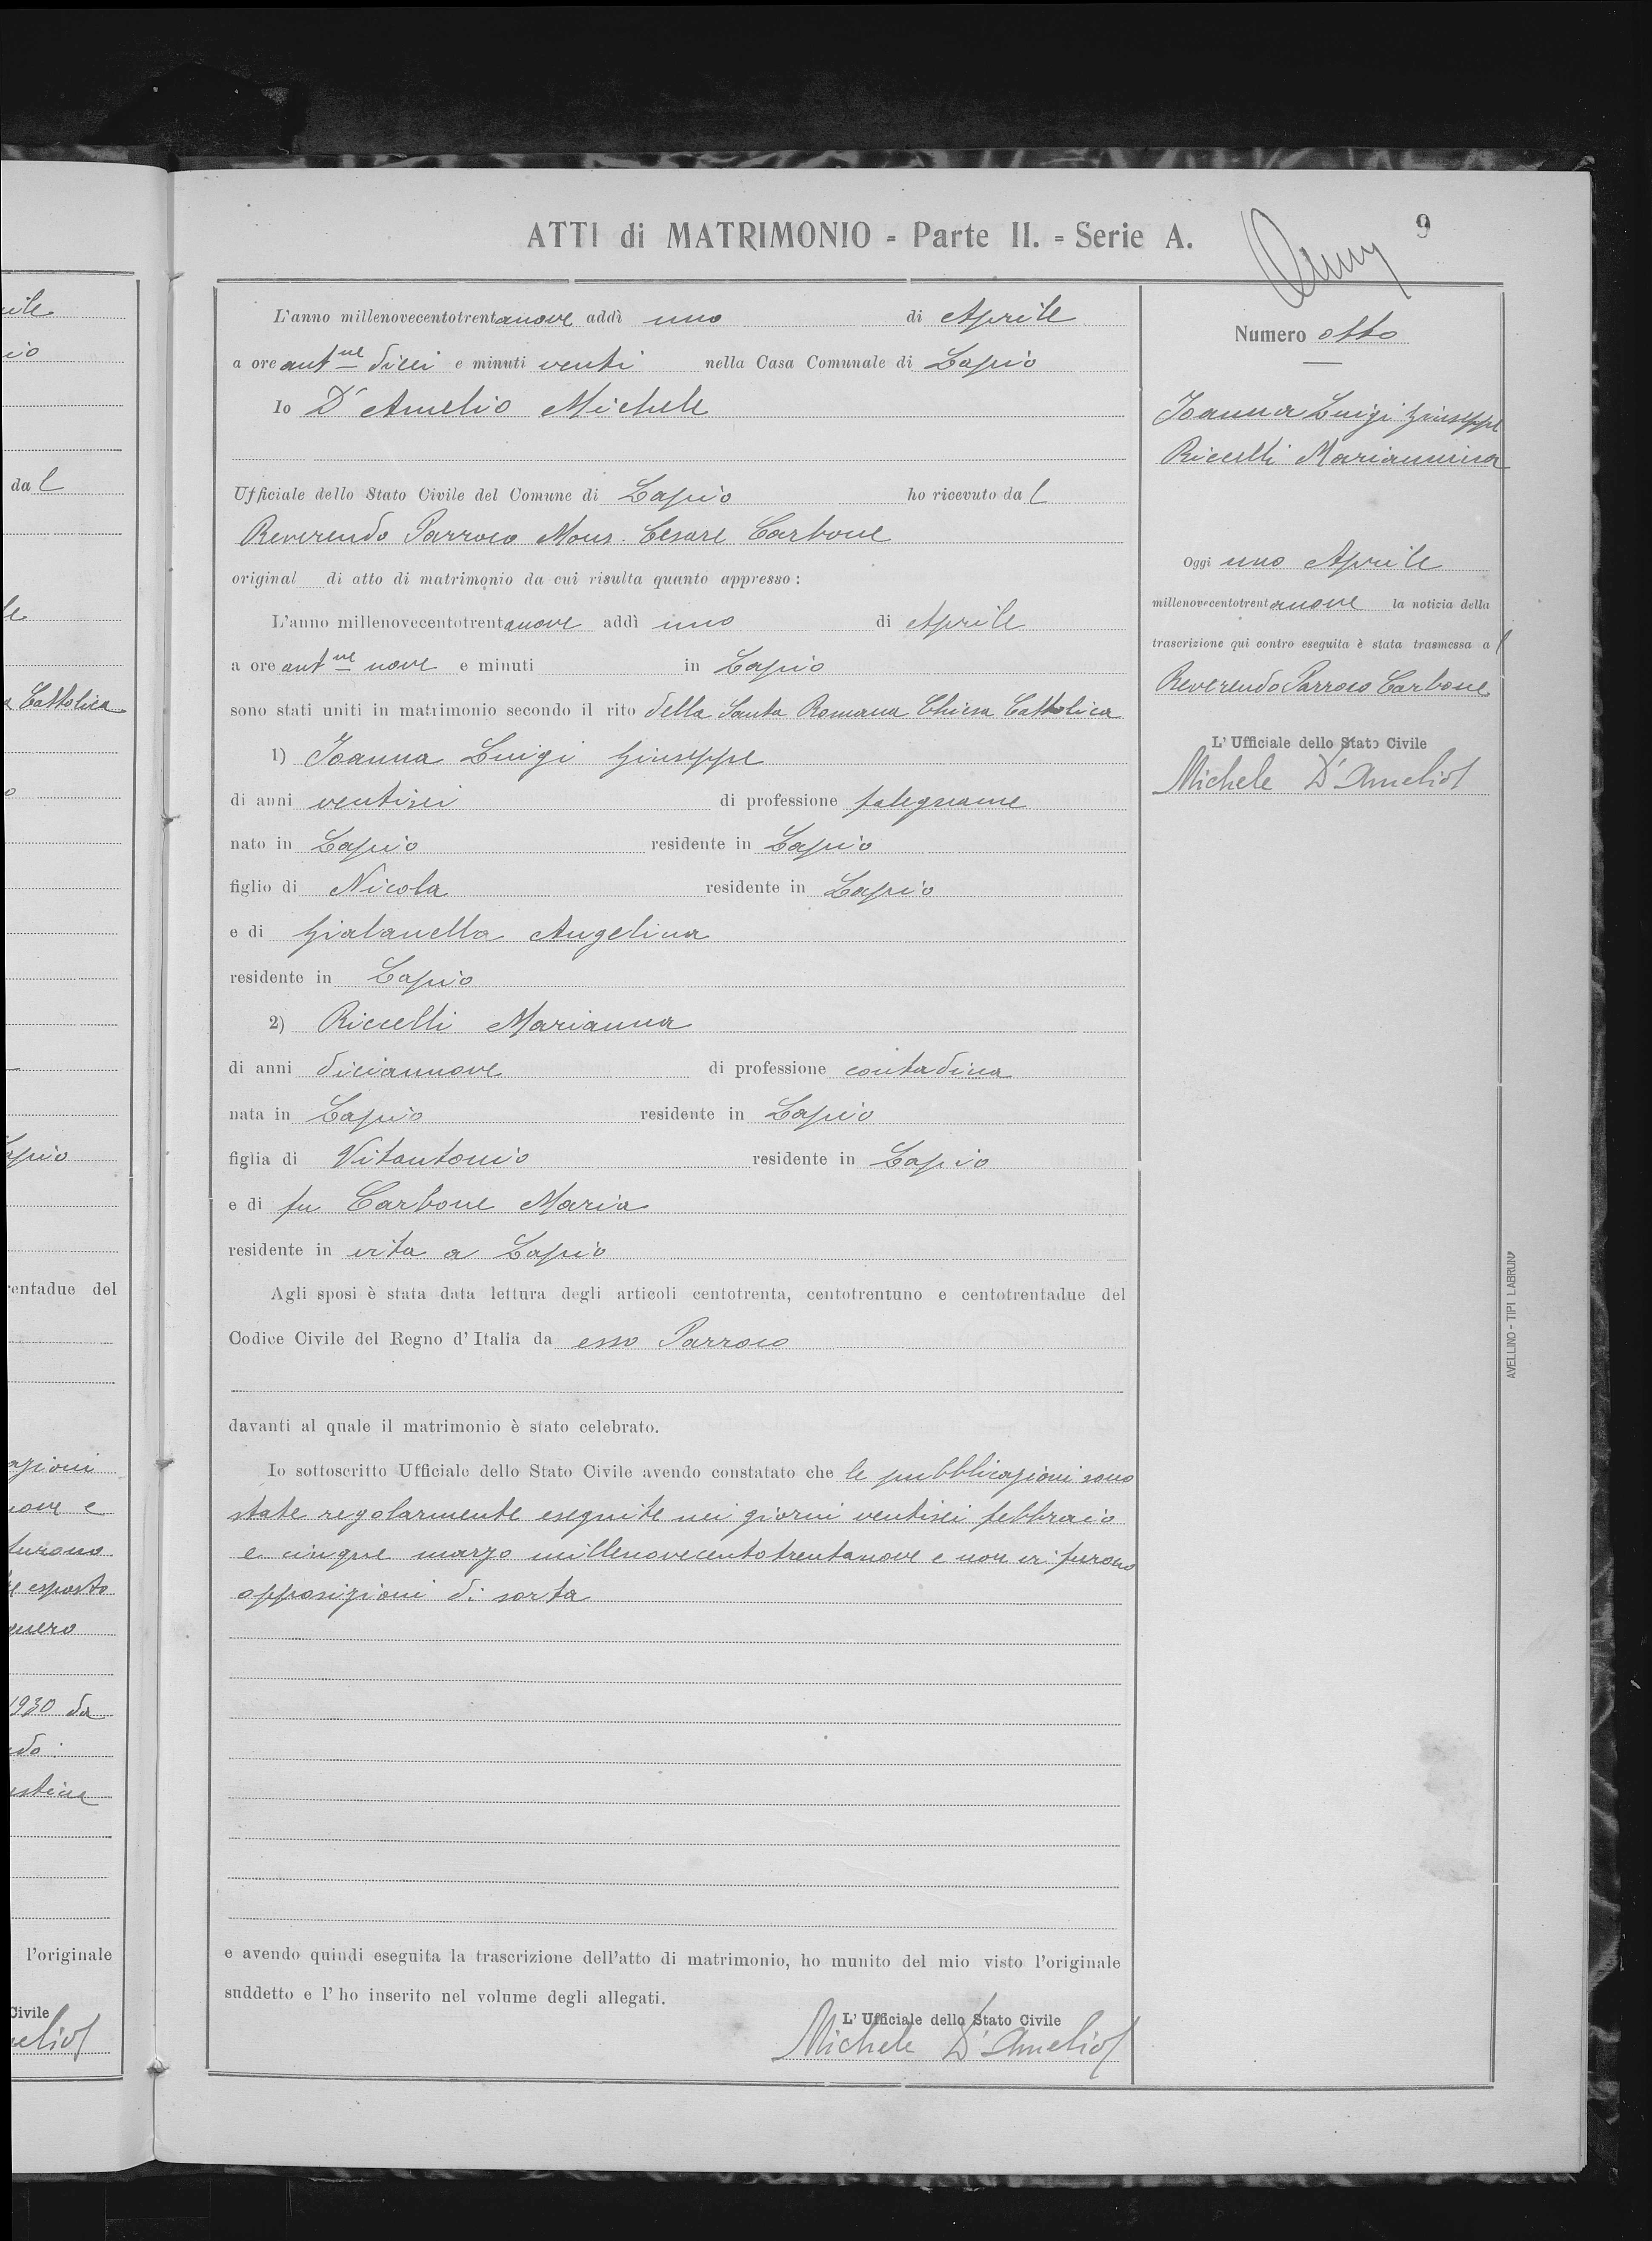 ATTI di MATRIMONIO - Parte II. - Serie A.
9
L'anno millenovecentotrentanove addì uno di Aprile
a ore ant.ne dieci e minuti venti nella Casa Comunale di Lapio
Io D'Amelio Michele
Ufficiale dello Stato Civile del Comune di Lapio ho ricevuto dal
Reverendo Parroco Mons. Cesare Carbone
original di atto di matrimonio da cui risulta quanto appresso:
L'anno millenovecentotrentanove addì uno di Aprile
a ore ant.ne nove e minuti in Lapio
sono stati uniti in matrimonio secondo il rito della Santa Romana Chiesa Cattolica
1) Ioanna Luigi Giuseppe
di anni ventisei di professione falegname
nato in Lapio residente in Lapio
figlio di Nicola residente in Lapio
e di Gialanella Angelina
residente in Lapio
2) Riccelli Marianna
di anni diciannove di professione contadina
nata in Lapio residente in Lapio
figlia di Vitantonio residente in Lapio
e di fu Carbone Maria
residente in vita a Lapio
Agli sposi è stata data lettura degli articoli centotrenta, centotrentuno e centotrentadue del
Codice Civile del Regno d'Italia da esso Parroco
davanti al quale il matrimonio è stato celebrato.
Io sottoscritto Ufficiale dello Stato Civile avendo constatato che le pubblicazioni sono
state regolarmente eseguite nei giorni ventisei febbraio
e cinque marzo millenovecentotrentanove e non vi furono
opposizioni di sorta
e avendo quindi eseguita la trascrizione dell'atto di matrimonio, ho munito del mio visto l'originale
suddetto e l'ho inserito nel volume degli allegati.
L'Ufficiale dello Stato Civile
Michele D'Amelio
Numero otto
Ioanna Luigi Giuseppe
Riccelli Mariannina
Oggi uno Aprile
millenovecentotrentanove la notizia della
trascrizione qui contro eseguita è stata trasmessa al
Reverendo Parroco Carbone
L'Ufficiale dello Stato Civile
Michele D'Amelio
AVELLINO - TIPI LABRUNA
dal
Cattolica
entadue del
esposto
1930 da
l'originale
Civile